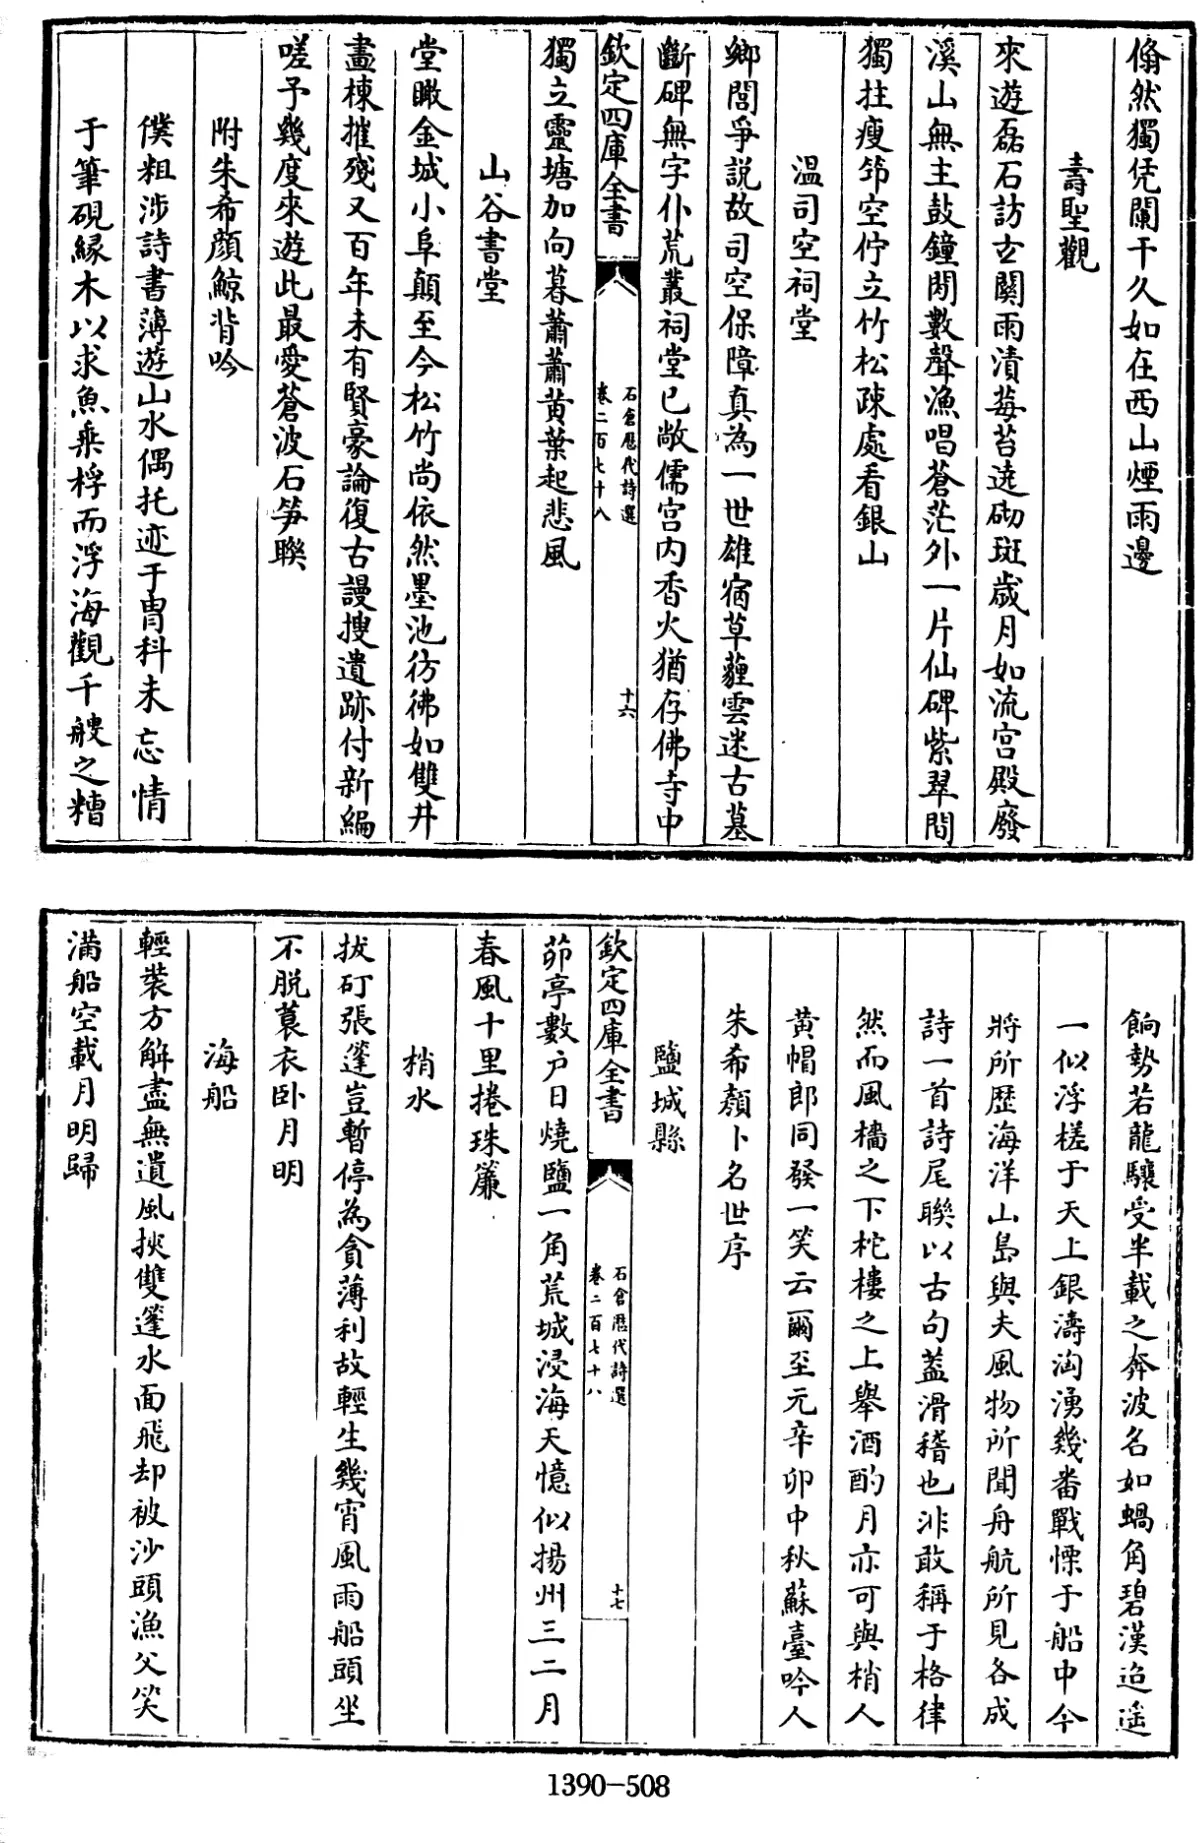 翛然獨凭闌干久如在西山煙雨邊
壽聖觀
來遊磊石訪玄關雨漬莓苔遶砌斑歲月如流宮殿廢
溪山無主鼓鐘閒數聲漁唱蒼茫外一片仙碑紫翠間
獨拄瘦筇空佇立竹松疎處看銀山
温司空祠堂
鄉閭爭説故司空保障真為一世雄宿草薶雲迷古墓
斷碑無字仆荒叢祠堂已敞儒宮内香火猶存佛寺中
欽定四庫全書
石倉歷代詩選
卷二百七十八
十六
獨立靈塘加向暮蕭蕭黄葉起悲風
山谷書堂
堂瞰金城小阜顛至今松竹尚依然墨池彷彿如雙井
畫棟摧殘又百年未有賢豪論復古謾搜遺跡付新編
嗟予幾度來遊此最愛蒼波石笋聨
附朱希顔鯨背吟
僕粗涉詩書薄遊山水偶托迹于胄科未忘情
于筆硯緣木以求魚乘桴而浮海觀千艘之糟
餉勢若龍驤受半載之奔波名如蝸角碧漢迢遥
一似浮槎于天上銀濤洶湧幾番戰慄于船中今
將所歷海洋山島與夫風物所聞舟航所見各成
詩一首詩尾聨以古句葢滑稽也非敢稱于格律
然而風檣之下柁樓之上舉酒酌月亦可與梢人
黄帽郎同發一笑云爾至元辛卯中秋蘇臺吟人
朱希顔卜名世序
鹽城縣
欽定四庫全書
石倉歷代詩選
卷二百七十八
十七
茆亭數户日燒鹽一角荒城浸海天憶似揚州三二月
春風十里捲珠簾
梢水
拔矴張篷豈暫停為貪薄利故輕生幾宵風雨船頭坐
不脱蓑衣卧月明
海船
輕裝方解盡無遺風挾雙篷水面飛却被沙頭漁父笑
滿船空載月明歸
1390-508